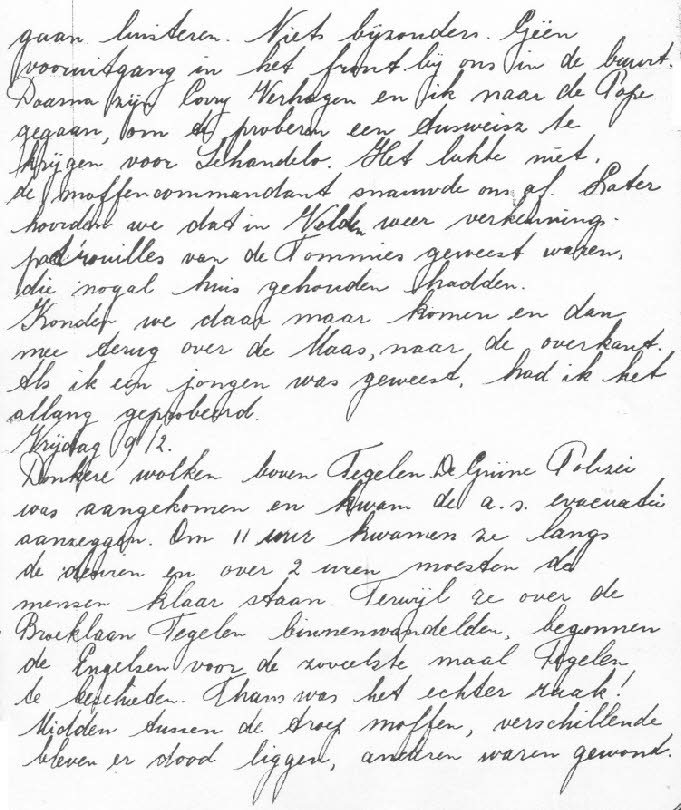 gaan luisteren. Niets bijzonders. Géén
vooruitgang in het front bij ons in de buurt.
Daarna zijn Corry Verhagen en ik naar de Pope
gegaan, om te proberen een Ausweisz te
krijgen voor Schandelo. Het lukte niet,
de moffencommandant snauwde ons af. Later
hoorden we dat in Velden weer verkennings-
patrouilles van de Tommies geweest waren,
die nogal huis gehouden hadden.
Konden we daar maar komen en dan
mee terug over de Maas, naar de overkant.
Als ik een jongen was geweest, had ik het
allang geprobeerd.
Vrijdag 9/2.
Donkere wolken boven Tegelen. De Grüne Polizei
was aangekomen en kwam de a.s. evacuatie
aanzeggen. Om 11 uur kwamen ze langs
de deuren en over 2 uren moesten de
mensen klaar staan. Terwijl ze over de
Broeklaan Tegelen binnenwandelden, begonnen
de Engelsen voor de zoveelste maal Tegelen
te beschieten. Thans was het echter raak!
Midden tussen de troep moffen, verschillende
bleven er dood liggen, anderen waren gewond.